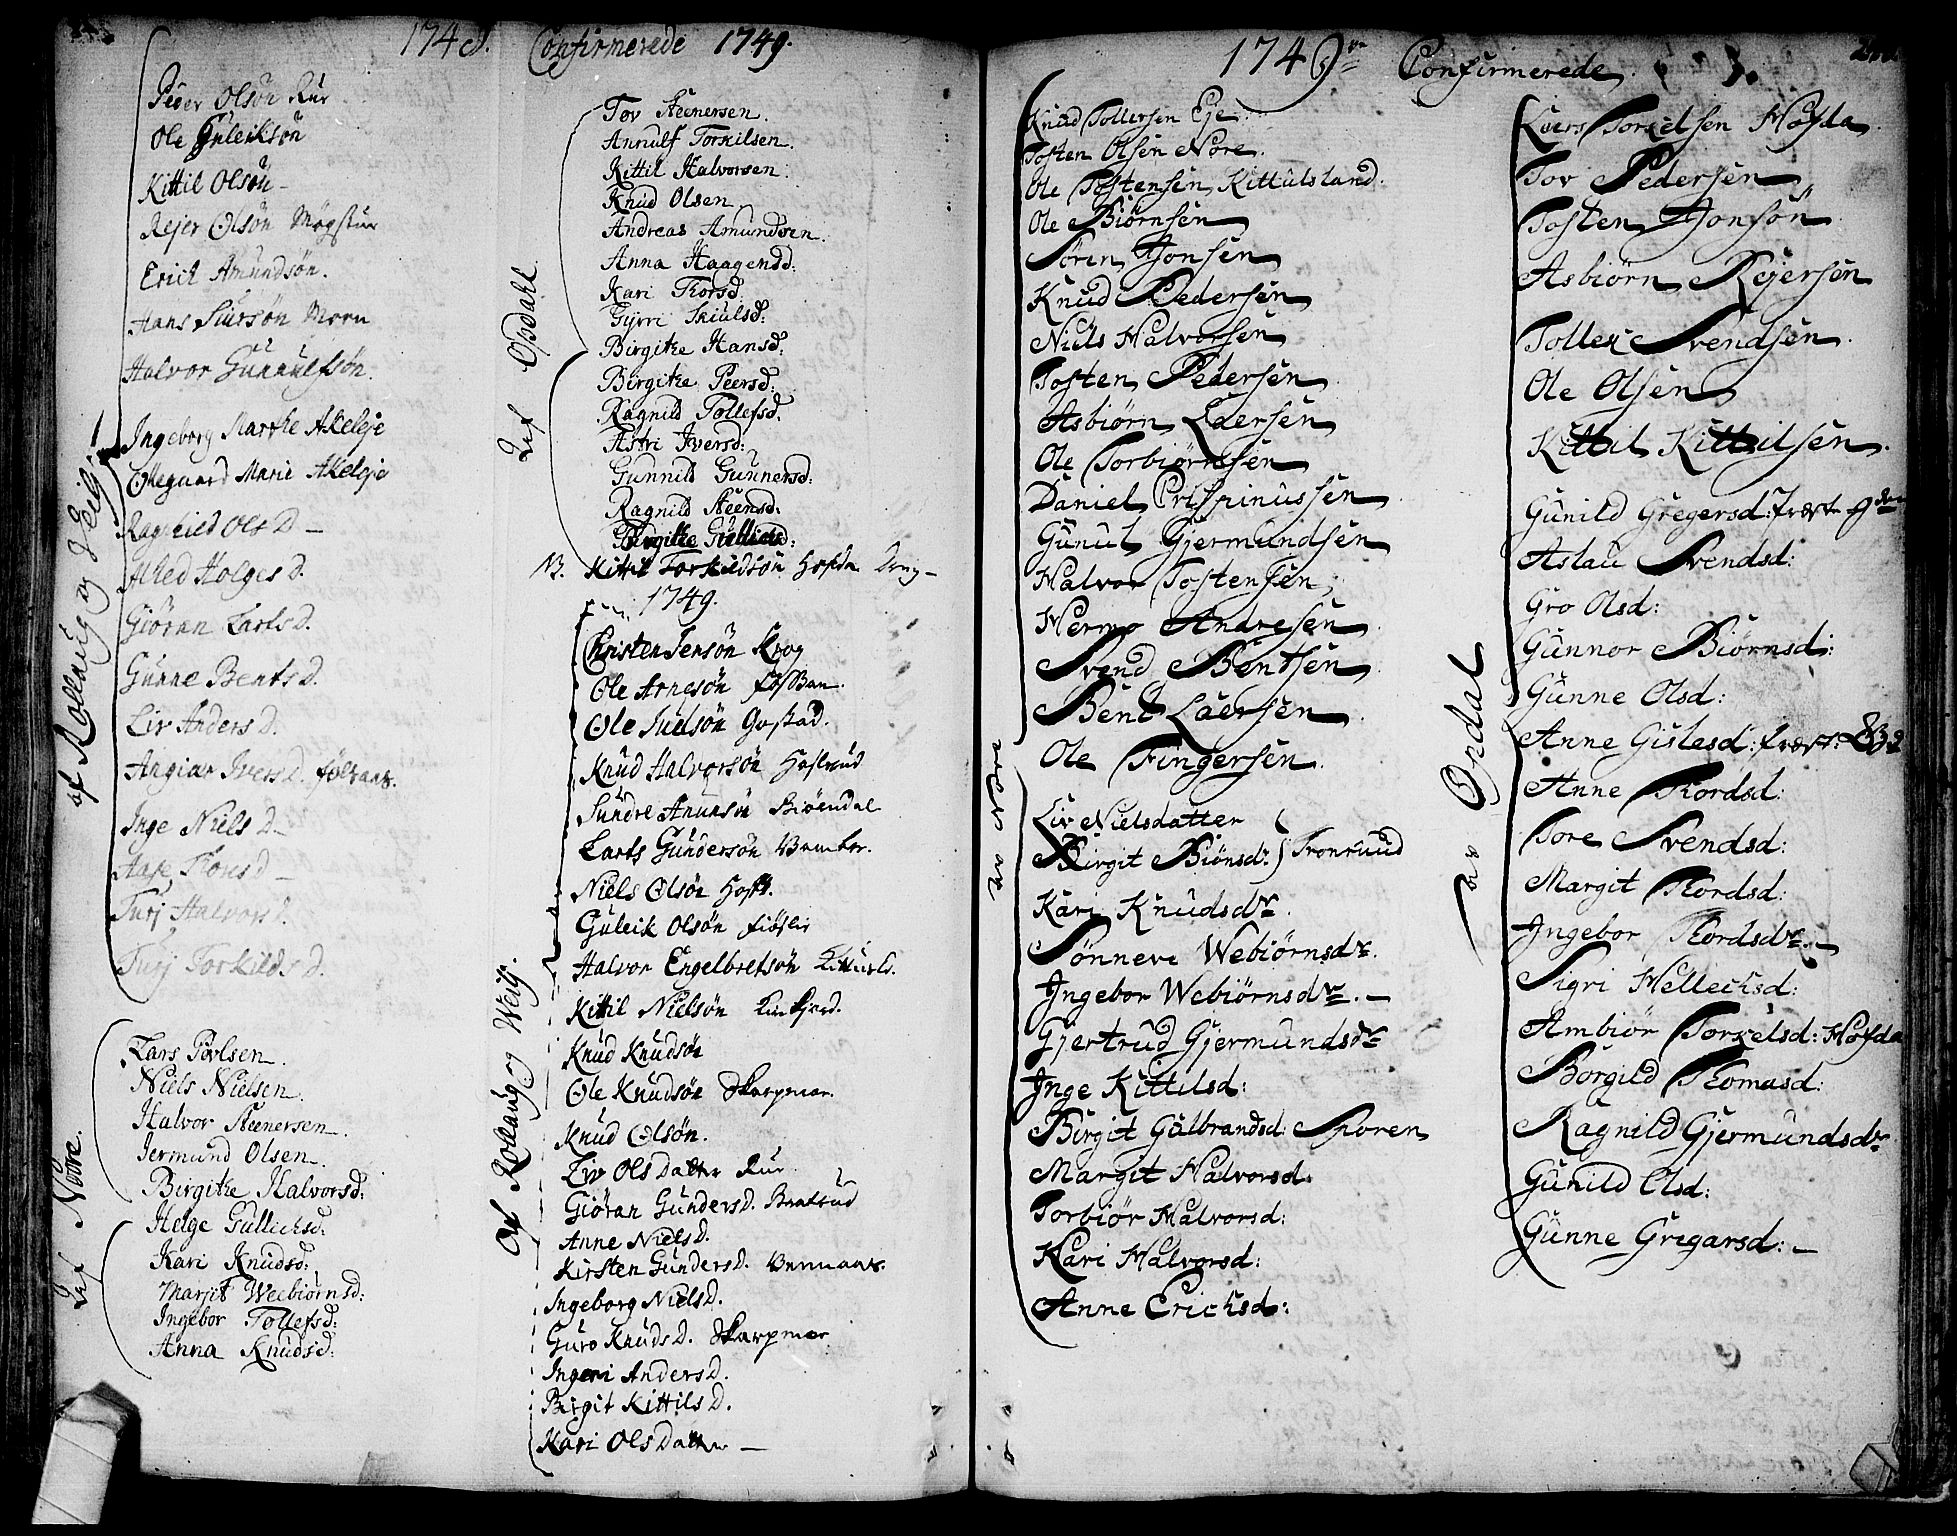 1748. Confirmerede 1749.
af Rollaug og Veig
Peder Olsön Rür
Ole Güleiksön
Kittil Olsön
Rejer Olsön Mogstue
Erich Amundsön.
Hans Siursön Moen
Halvor Gunnulfsön.
Ingeborg Marthe Akeleje
Olegaard Marie Akeleje
Ragnild Ols D -
Alhed Holges D.
Giöran Lars D.
Günne Bents D.
Liv Anders D.
Angier Ivers D.
Inge Niels D -
Aase Thores D -
Turj Halvors D.
Turj Torkilds D.
Lef Nore.
Lars Povlsen.
Niels Nielsen.
Halvor Steenersen.
Jermund Olsen.
Birgithe Halvorsd:
Helge Gullechsd:
Kari Knudsd:
Marjit Weebiörnsd:
Ingebor Tollefsd:
Anna Knudsd:
Lef Opdahl
Tov Steenersen.
Annulf Torkilsen.
Kittil Halvorsen.
Knud Olsen.
Andreas Amundsen.
Anna Haagensd:
Kari Thorsd.
Gyrri Skiulsd:
Birgithe Hansd:
Birgithe Peersd:
Ragnild Tollefsd.
Astri Iversd:
Gunnild Gunnersd:
Ragnild Steensd:
Birgithe Gulliksd:
N. Kittil Torkildsön Hofda Dreng -
1749.
Af Rollaug og Weig.
Christen Jensön Krog
Ole Arnesön Fossan.
Ole Juelsön Gostad.
Knud Halvorsön Haslerud
Sundre Amunsön Biöendal
Lars Gundersön
Niels Olsön Hoff.
Guleik Olsön Fiösli
Halvor Engelbretsön Kittilsl.
Kittil Nielsön
Knud Knudsön
Ole Knudsön Skarpmoe.
Knud Olsön.
Liv Olsdatter Rur
Giöran Gunders D. Bratrud
Anne Niels D.
Kirsten Gunders D.
Ingeborg Niels D.
Guro Knuds D. Skarpmoe
Ingeri Anders D.
Birgit Kittils D.
Kari Olsdatter -
1749 Confirmerede
av Nore
Knud Tollersen Eje
Tosten Olsen Nore.
Ole Tostensen Kittulsland.
Ole Biörnsen
Sören Jonsen
Knud Pedersen
Niels Halvorsen
Tosten Pedersen
Asbiörn Laersen
Ole Torbiörnsen
Daniel Crispinussen
Gunul Gjermundsen
Halvor Tostensen
Hermo Andresen
Svend Bentsen
Bent Laersen
Ole Fingersen.
Liv Nielsdatter
Birgit Biönsd: } Tronruud
Kari Knudsdr.
Sönneve Webiörnsdr.
Ingebor Webiörnsdr. -
Gjertrud Gjermundsdr
Inge Kittilsd:
Birgit Gulbrandsd: Sporen
Margit Halvorsd:
Torbiör Halvorsd:
Kari Halvorsd:
Anne Erichsd:
av Opdal
Laers Torkelsen Hofda.
Tov Pedersen
Tosten Jonsön
Asbiörn Rejersen
Tollex Svendsen.
Ole Olsen
Kittil Kittilsen.
Gunild Gregersd:
Aslau Svendsd:
Gro Olsd:
Gunnor Biörnsd:
Gunne Olsd:
Anne Gislesd:
Anne Thordsd:
Tore Svendsd:
Margit Thordsd:
Ingebor Thordsdr. -
Sigri Hellechsd:
Ambiör Torkelsd: Hofda
Borgild Thomasd:
Ragnild Gjermundsdr
Gunild Olsd:
Gunne Grigarsd: -